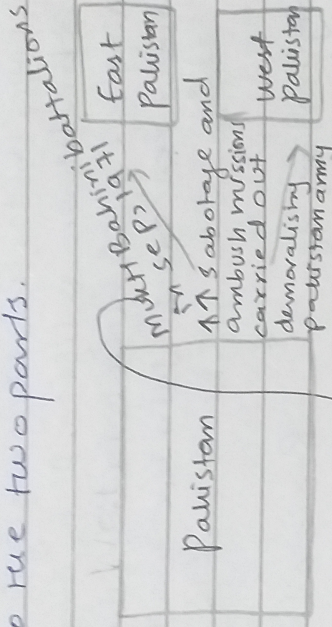 the two parts.
Pakistan
Mukti Bahini battalions
in Sep 1971
↑↑ Sabotage and
ambush missions
carried out
demoralistng
pakistan army
East
Pakistan
West
Pakistan